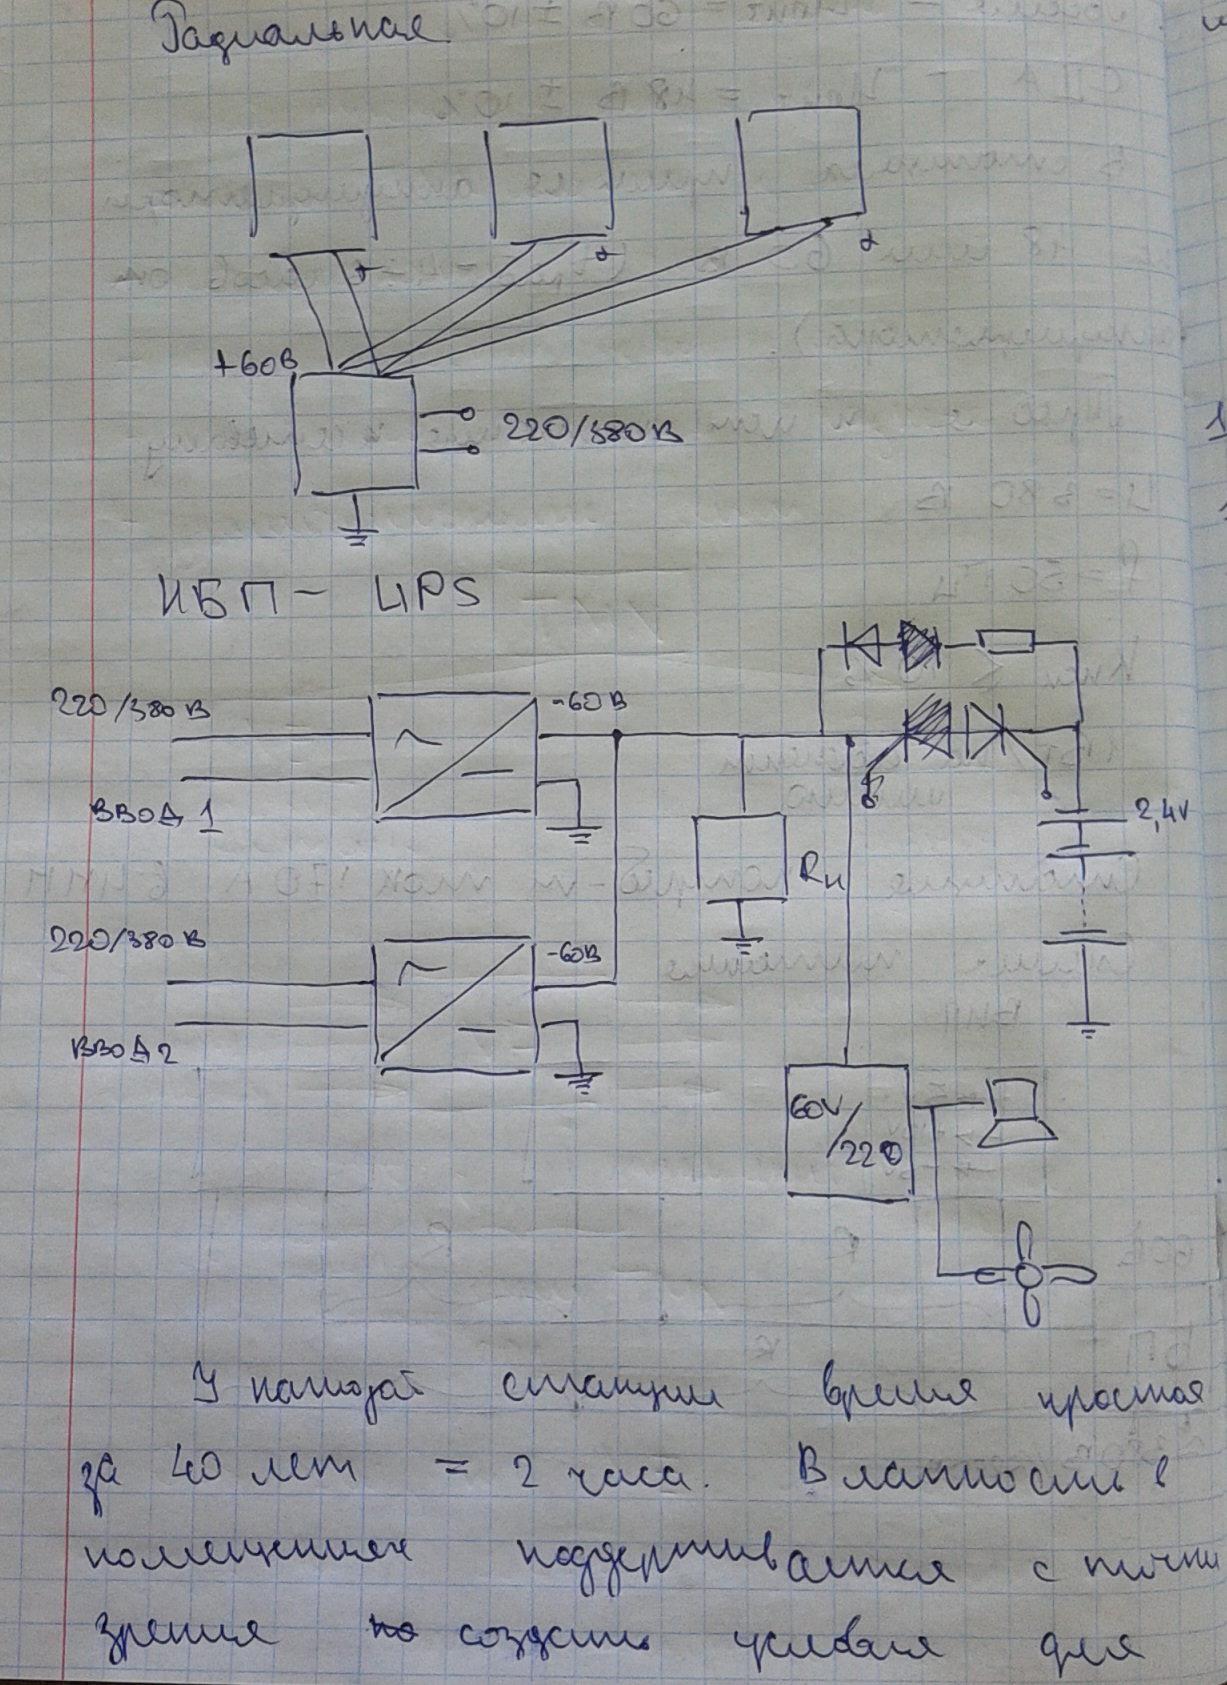 Радиальная
+
+
+
+60В
220/380В
ИБП - UPS
220/380В
-60В
ВВОД 1
2,4V
Rн
220/380В
-60В
ВВОД 2
60V/220
У каждой станции время простоя
за 40 лет = 2 часа. Влажность в
помещениях поддерживается с точки
зрения создать условия для